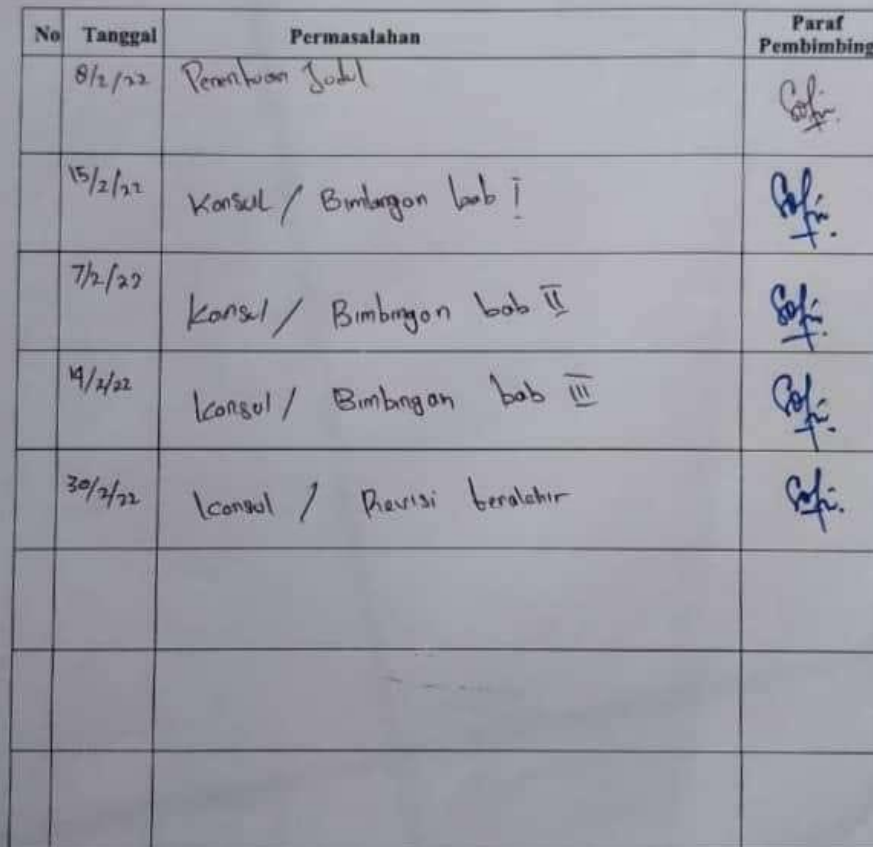 No Tanggal Permasalahan Paraf Pembimbing
8/2/22 Penentuan Judul
15/2/22 Konsul / Bimbingan bab I
7/2/22 Konsul / Bimbingan bab II
14/2/22 Konsul / Bimbingan bab III
30/2/22 Konsul / Revisi berakhir